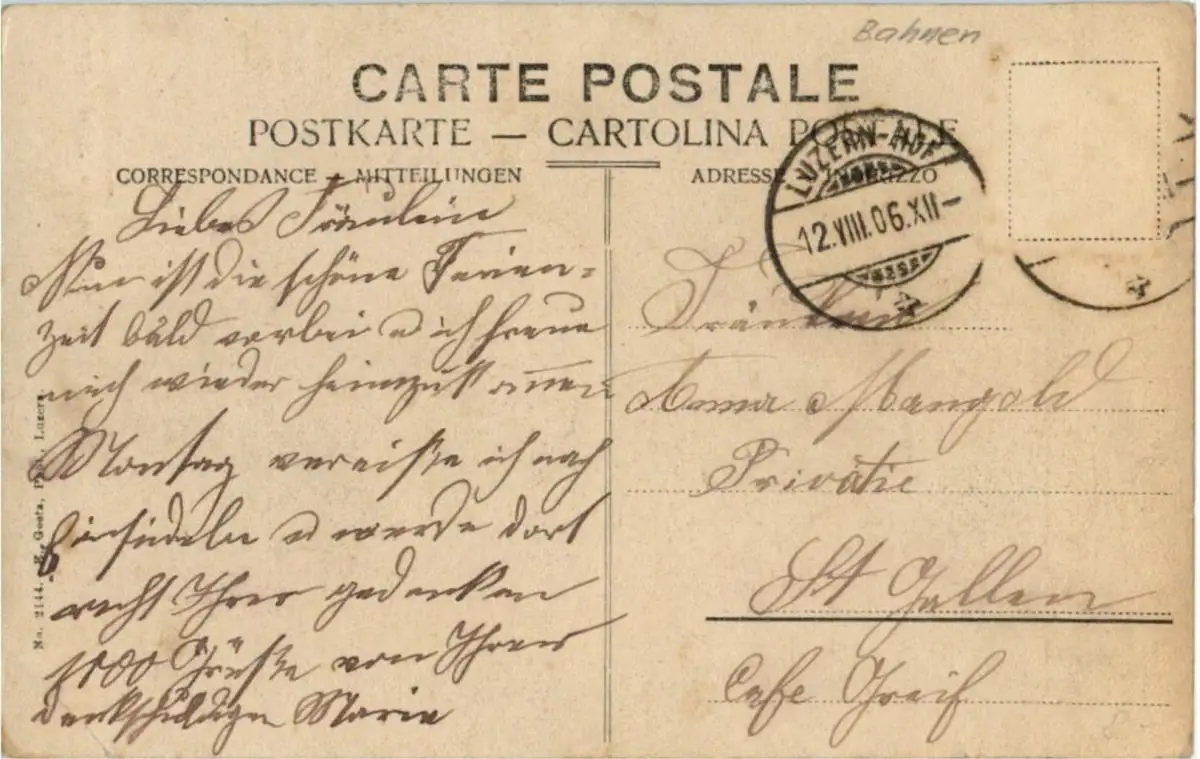 Bahnen
CARTE POSTALE
POSTKARTE — CARTOLINA POSTALE
CORRESPONDANCE - MITTEILUNGEN
ADRESSE INDIRIZZO
LUZERN-HOF
12.VIII.06.XII-
Liebes Fräulein
Nun ist die schöne Ferien=
zeit bald vorbei u ich freue
mich wieder heimzukommen
Montag verreiste ich nach
Einsiedeln u werde dort
recht Ihrer gedenken
1000 Grüße von Ihrer
dankschuldigen Marie
Fräulein
Anna Mangold
Private
St Gallen
Cafe Greif
No. 2144. E. Goetz, Luzern.